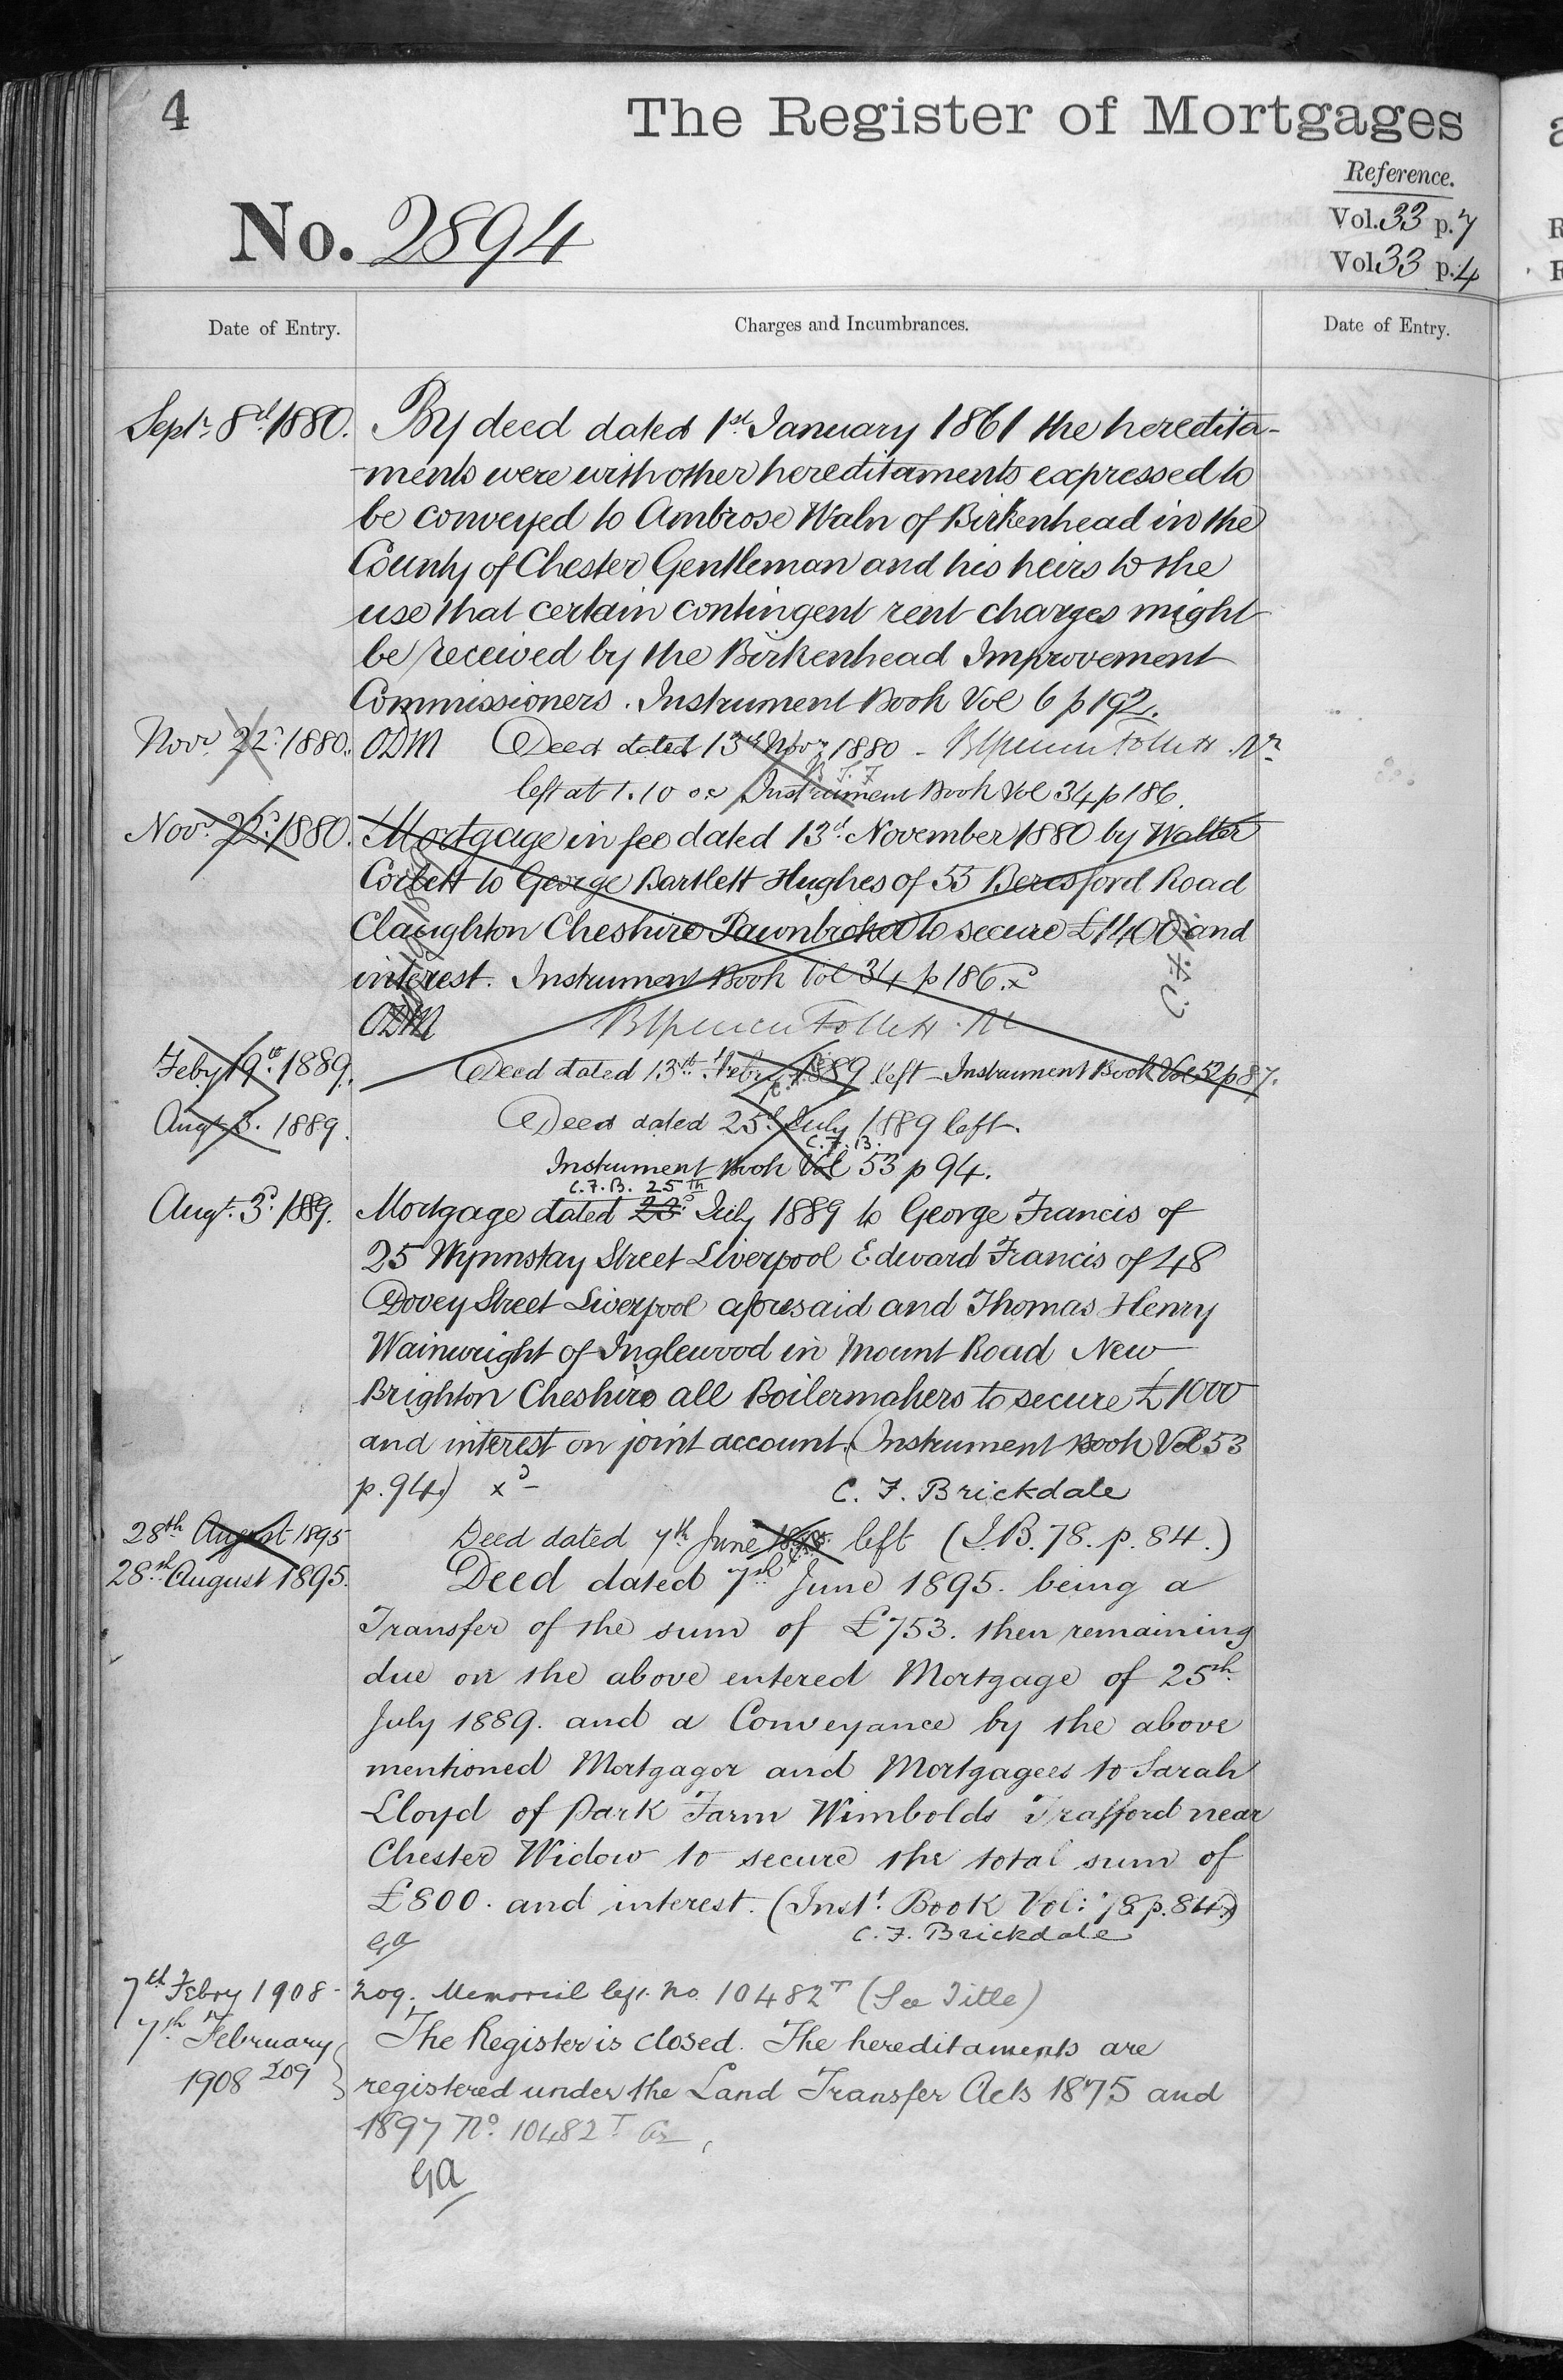 4
The Register of Mortgages
Reference.
Vol. 33 p. 7
No. 2894
Vol 33 p. 4
Date of Entry. Charges and Incumbrances. Date of Entry.
Septr. 8th 1880. By deed dated 1st January 1861 the heredita-
-ments were with other hereditaments expressed to
be conveyed to Ambrose Waln of Birkenhead in the
County of Chester Gentleman and his heirs to the
use that certain contingent rent charges might
be received by the Birkenhead Improvement
Commissioners. Instrument Book Vol 6 p 192.
Novr. 22d. 1880. ODM Deed dated 13th Novr. 1880 -
left at 1.10 Instrument Book Vol 34 p 186.
Novr. 22d. 1880. Mortgage in fee dated 13th November 1880 by Walter
Corlett to George Bartlett Hughes of 55 Beresford Road
Claughton Cheshire Pawnbroker to secure £1400 and
interest. Instrument Book Vol 34 p 186.
ODM
Feby 19th. 1889. Deed dated 13th. Feby 1889 left - Instrument Book Vol 52 p 87.
Augt. 3. 1889. Deed dated 25th July 1889 left.
C.F.B.
Instrument Book Vol 53 p 94.
C.F.B. 25th
Augt. 3d. 1889. Mortgage dated 23d July 1889 to George Francis of
25 Wynnstay Street Liverpool Edward Francis of 48
Dovey Street Liverpool aforesaid and Thomas Henry
Wainwright of Inglewood in Mount Road New
Brighton Cheshire all Boilermakers to secure £1000
and interest on joint account. (Instrument Book Vol 53
p. 94.) xd- C. F. Brickdale
28th August 1895 Deed dated 7th June 1895 left (I.B. 78. p. 84.)
28th August 1895. Deed dated 7th June 1895. being a
Transfer of the sum of £753. then remaining
due on the above entered Mortgage of 25th
July 1889. and a Conveyance by the above
mentioned Mortgagor and Mortgagees to Sarah
Lloyd of Park Farm Wimbolds Trafford near
Chester Widow to secure the total sum of
£800. and interest. (Inst: Book Vol: 78 p. 84.)
C. F. Brickdale
GA
7th Febry 1908 - 209. Memorial No. 10482T (See Title)
7th February The Register is closed. The hereditaments are
1908 209 registered under the Land Transfer Acts 1875 and
1897 No. 10482T
GA